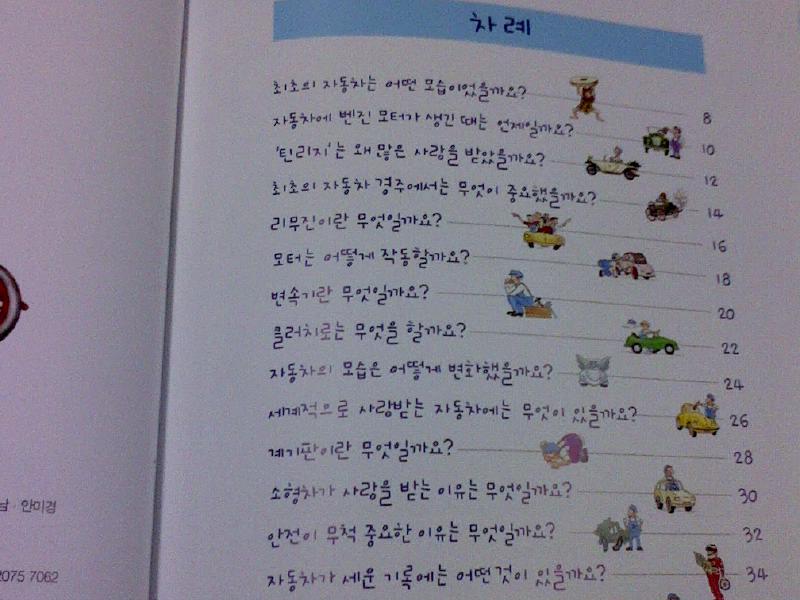 차례
최초의 자동차는 어떤 모습이었을까요? 8
자동차에 벤진 모터가 생긴 때는 언제일까요? 10
'틴리지'는 왜 많은 사랑을 받았을까요? 12
최초의 자동차 경주에서는 무엇이 중요했을까요? 14
리무진이란 무엇일까요? 16
모터는 어떻게 작동할까요? 18
변속기란 무엇일까요? 20
클러치로는 무엇을 할까요? 22
자동차의 모습은 어떻게 변화했을까요? 24
세계적으로 사랑받는 자동차에는 무엇이 있을까요? 26
계기판이란 무엇일까요? 28
소형차가 사랑을 받는 이유는 무엇일까요? 30
안전이 무척 중요한 이유는 무엇일까요? 32
자동차가 세운 기록에는 어떤 것이 있을까요? 34
남·안미경
2075 7062